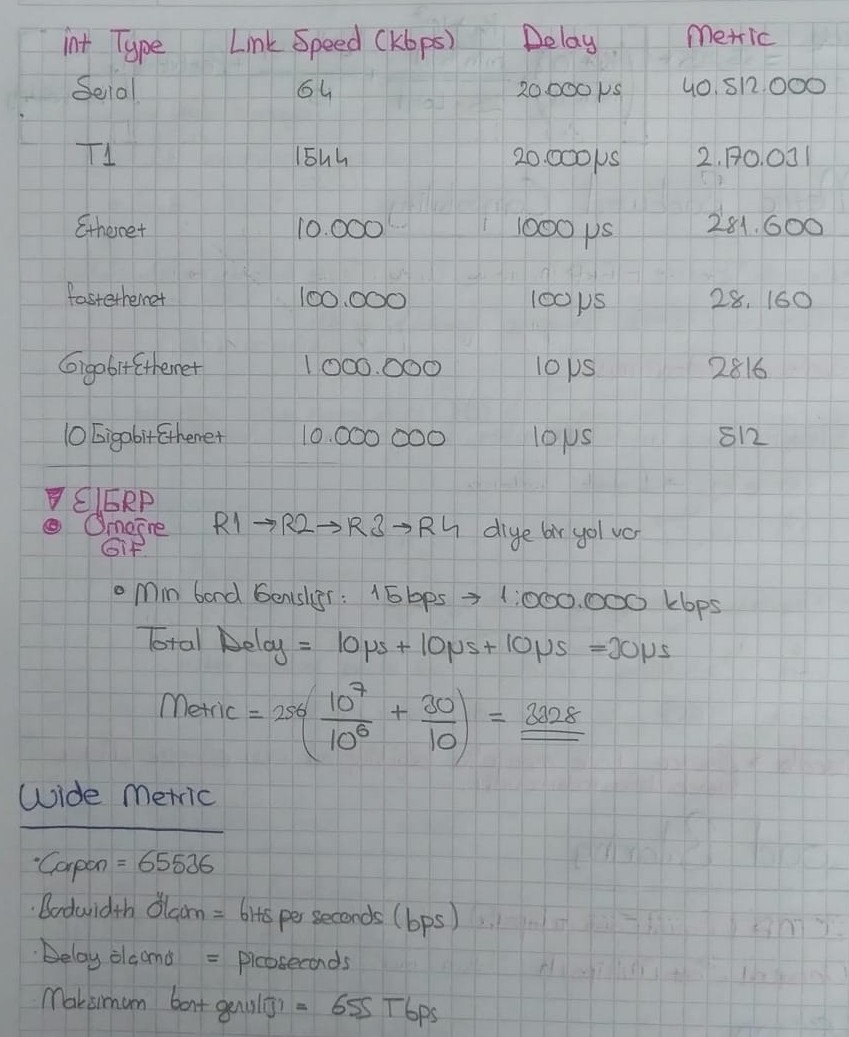 int Type Link Speed (kbps) Delay Metric
Serial 64 20.000 µs 40.512.000
T1 1544 20.000µs 2.170.031
Ethernet 10.000 1000 µs 281.600
fastethernet 100.000 100µs 28.160
GigabitEthernet 1000.000 10 µs 2816
10 GigabitEthernet 10.000 000 10µs 512
EIGRP
Örneğine R1 → R2 → R3 → R4 diye bir yol var
Git
Min band Genişliği: 1Gbps → 1.000.000 kbps
Total Delay = 10µs + 10µs + 10µs = 30µs
Metric = 256 (10⁷/10⁶ + 30/10) = 3328
Wide Metric
· Çarpan = 65536
· Badwidth Ölçüm = bits per seconds (bps)
· Delay ölçümü = picoseconds
Maksimum bant genişliği = 655 Tbps